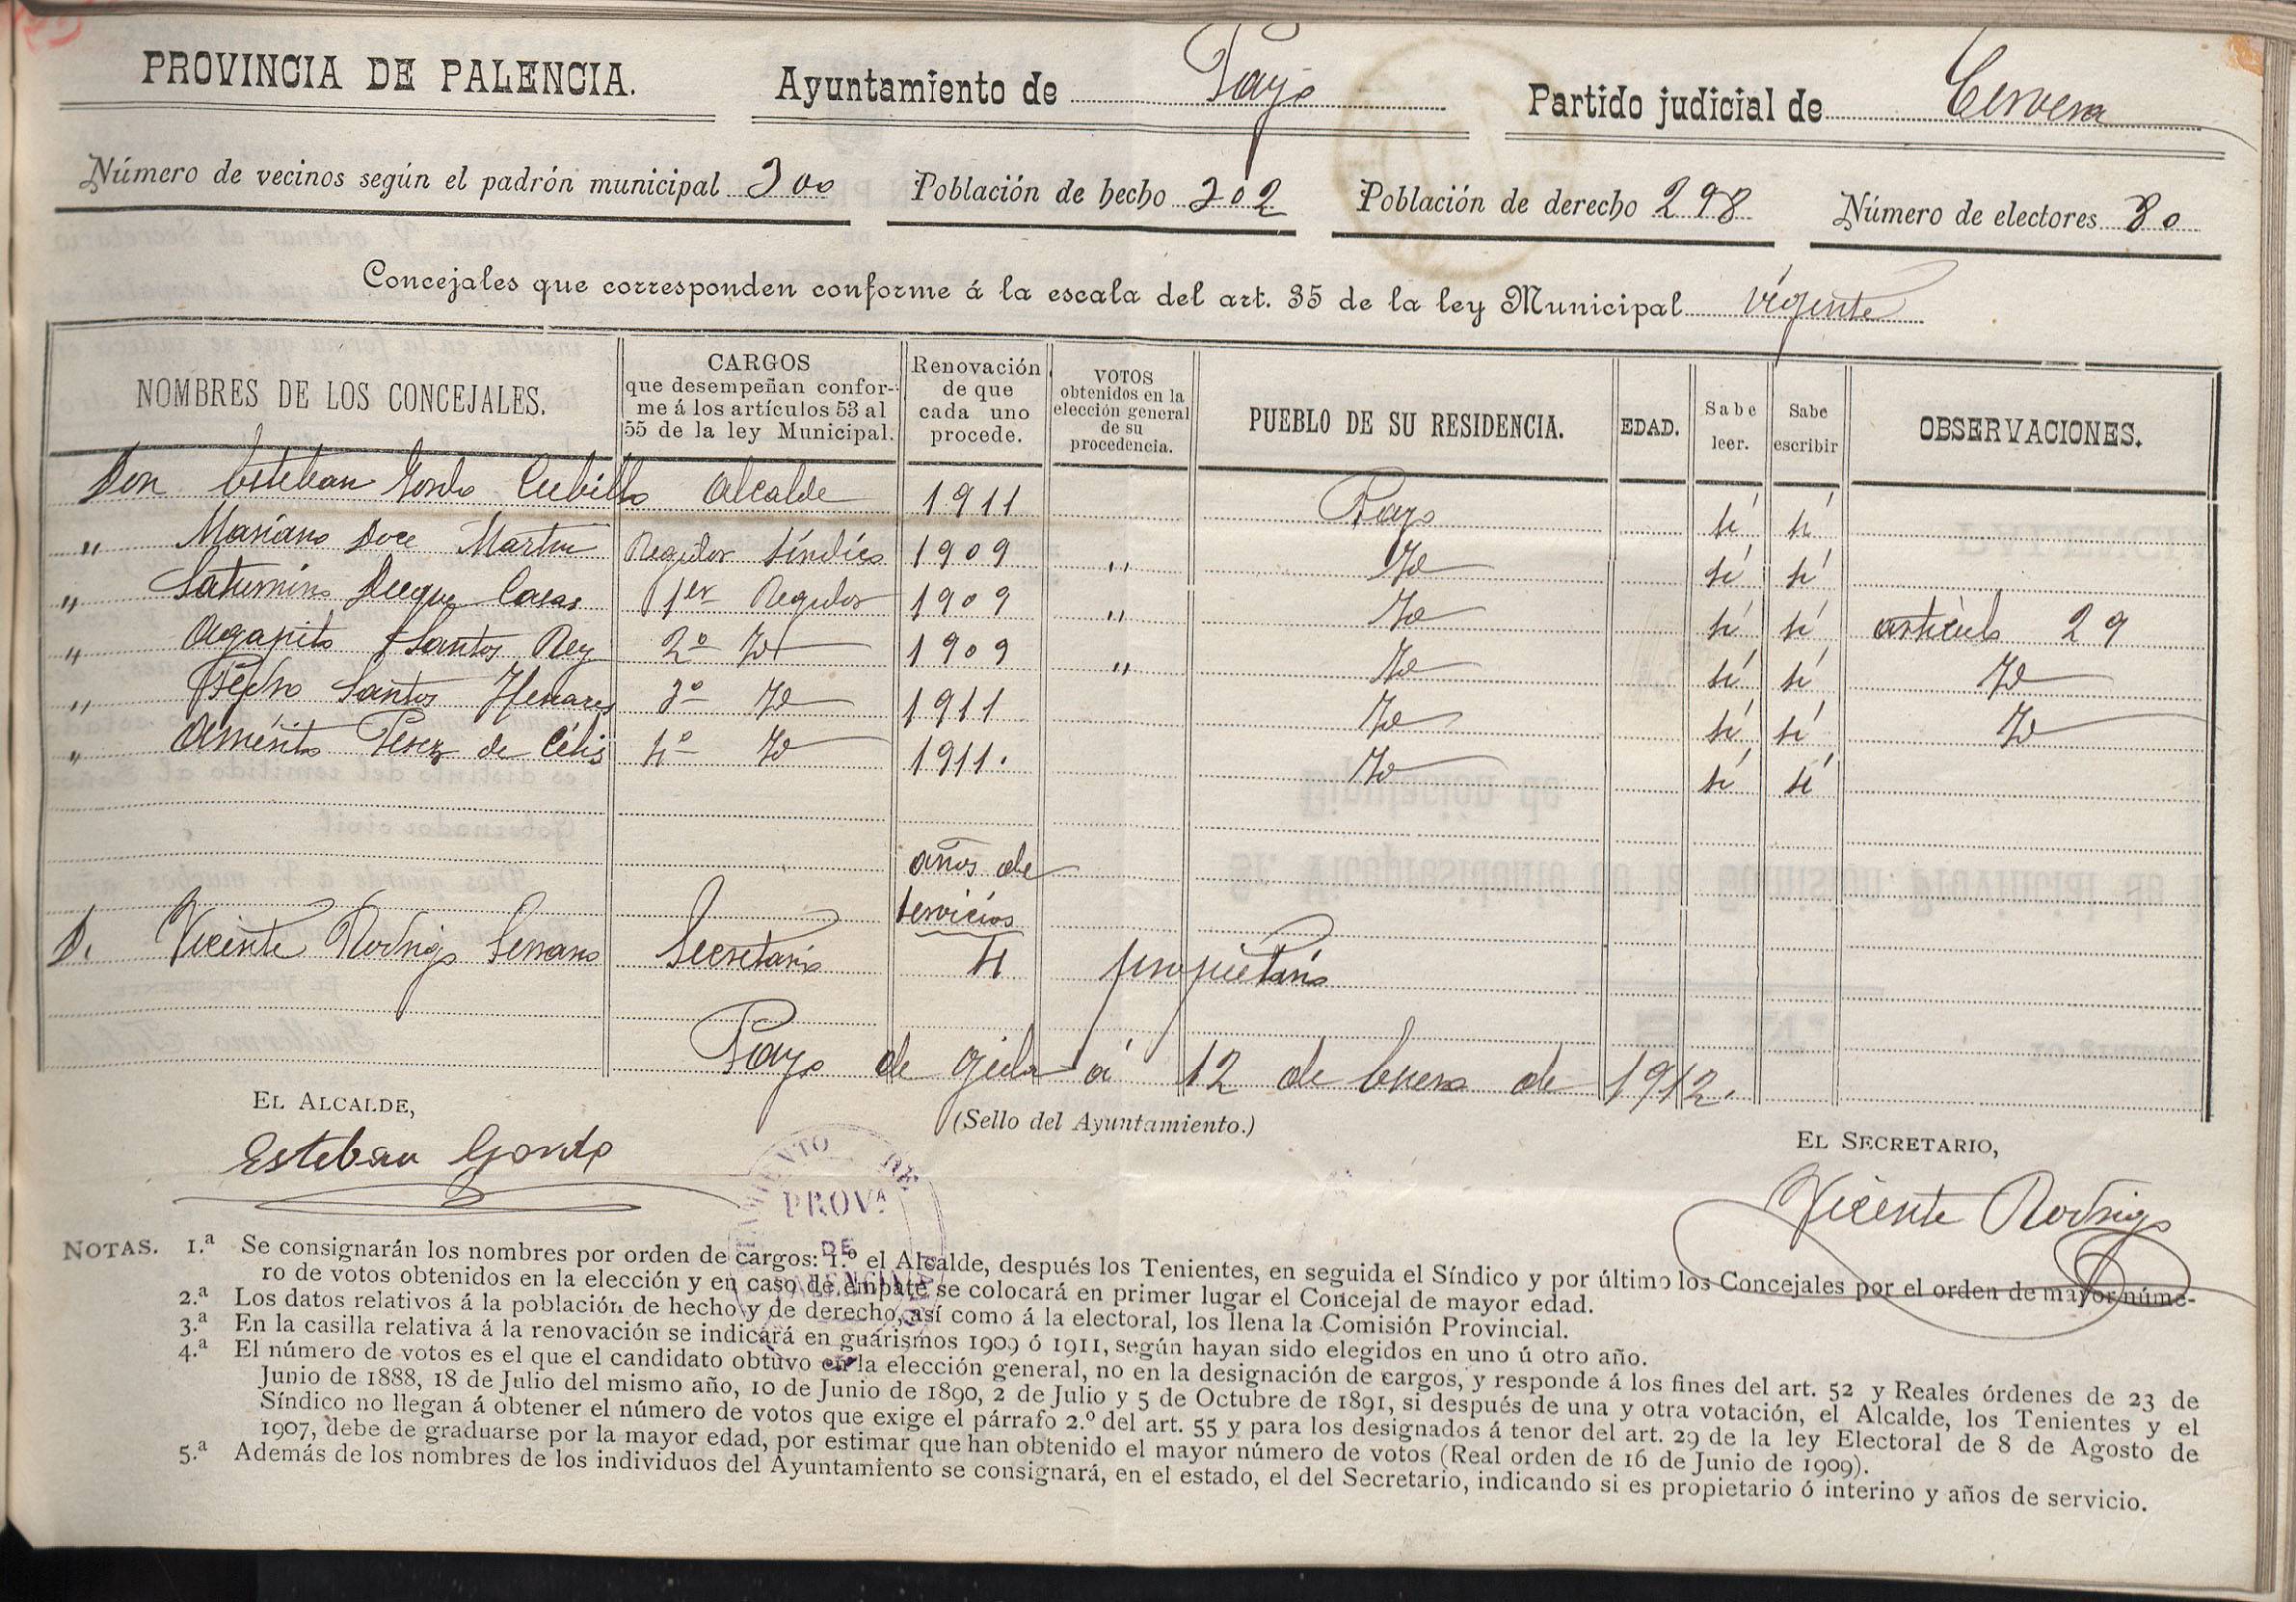 PROVINCIA DE PALENCIA. Ayuntamiento de Payo Partido judicial de Cervera
Número de vecinos según el padrón municipal 300 Población de hecho 302 Población de derecho 298 Número de electores 80
Concejales que corresponden conforme á la escala del art. 35 de la ley Municipal vigente
NOMBRES DE LOS CONCEJALES. CARGOS que desempeñan confor-me á los artículos 53 al 55 de la ley Municipal. Renovación de que cada uno procede. VOTOS obtenidos en la elección general de su procedencia. PUEBLO DE SU RESIDENCIA. EDAD. Sabe leer. Sabe escribir OBSERVACIONES.
Don Esteban Gordo Cubillo Alcalde 1911 Payo sí sí
" Mariano Doce Martin Regidor Síndico 1909 " Id sí sí
" Saturnino Luque Casas 1er Regidor 1909 " Id sí sí artículo 29
" Agapito Santos Rey 2º Id 1909 " Id sí sí Id
" Pedro Santos Henares 3º Id 1911 Id sí sí Id
" Emérito Pérez de Célis 4º Id 1911. Id sí sí
años de
servicios
D. Vicente Rodrigo Serrano Secretario 4 propietario
Payo de Ojeda á 12 de Enero de 1912.
EL ALCALDE,
(Sello del Ayuntamiento.)
EL SECRETARIO,
Esteban Gordo
Vicente Rodrigo
PROVA
DE
NOTAS. 1.ª Se consignarán los nombres por orden de cargos: 1.º el Alcalde, después los Tenientes, en seguida el Síndico y por último los Concejales por el orden de mayor núme-
ro de votos obtenidos en la elección y en caso de empate se colocará en primer lugar el Concejal de mayor edad.
2.ª Los datos relativos á la población de hecho y de derecho, así como á la electoral, los llena la Comisión Provincial.
3.ª En la casilla relativa á la renovación se indicará en guarismos 1909 ó 1911, según hayan sido elegidos en uno ú otro año.
4.ª El número de votos es el que el candidato obtuvo en la elección general, no en la designación de cargos, y responde á los fines del art. 52 y Reales órdenes de 23 de
Junio de 1888, 18 de Julio del mismo año, 10 de Junio de 1890, 2 de Julio y 5 de Octubre de 1891, si después de una y otra votación, el Alcalde, los Tenientes y el
Síndico no llegan á obtener el número de votos que exige el párrafo 2.º del art. 55 y para los designados á tenor del art. 29 de la ley Electoral de 8 de Agosto de
1907, debe de graduarse por la mayor edad, por estimar que han obtenido el mayor número de votos (Real orden de 16 de Junio de 1909).
5.ª Además de los nombres de los individuos del Ayuntamiento se consignará, en el estado, el del Secretario, indicando si es propietario ó interino y años de servicio.